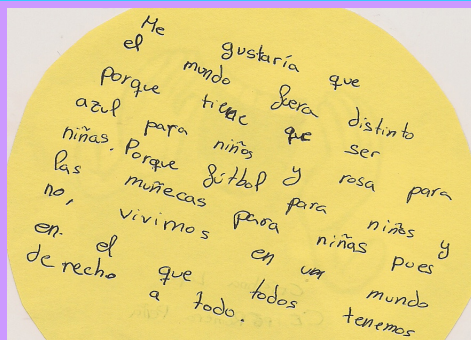 Me gustaría que
el mundo fuera distinto
porque tiene que ser
azul para niños y rosa para
niñas. Porque fútbol para niños y
las muñecas para niñas pues
no, vivimos en un mundo
en el que todos tenemos
derecho a todo.